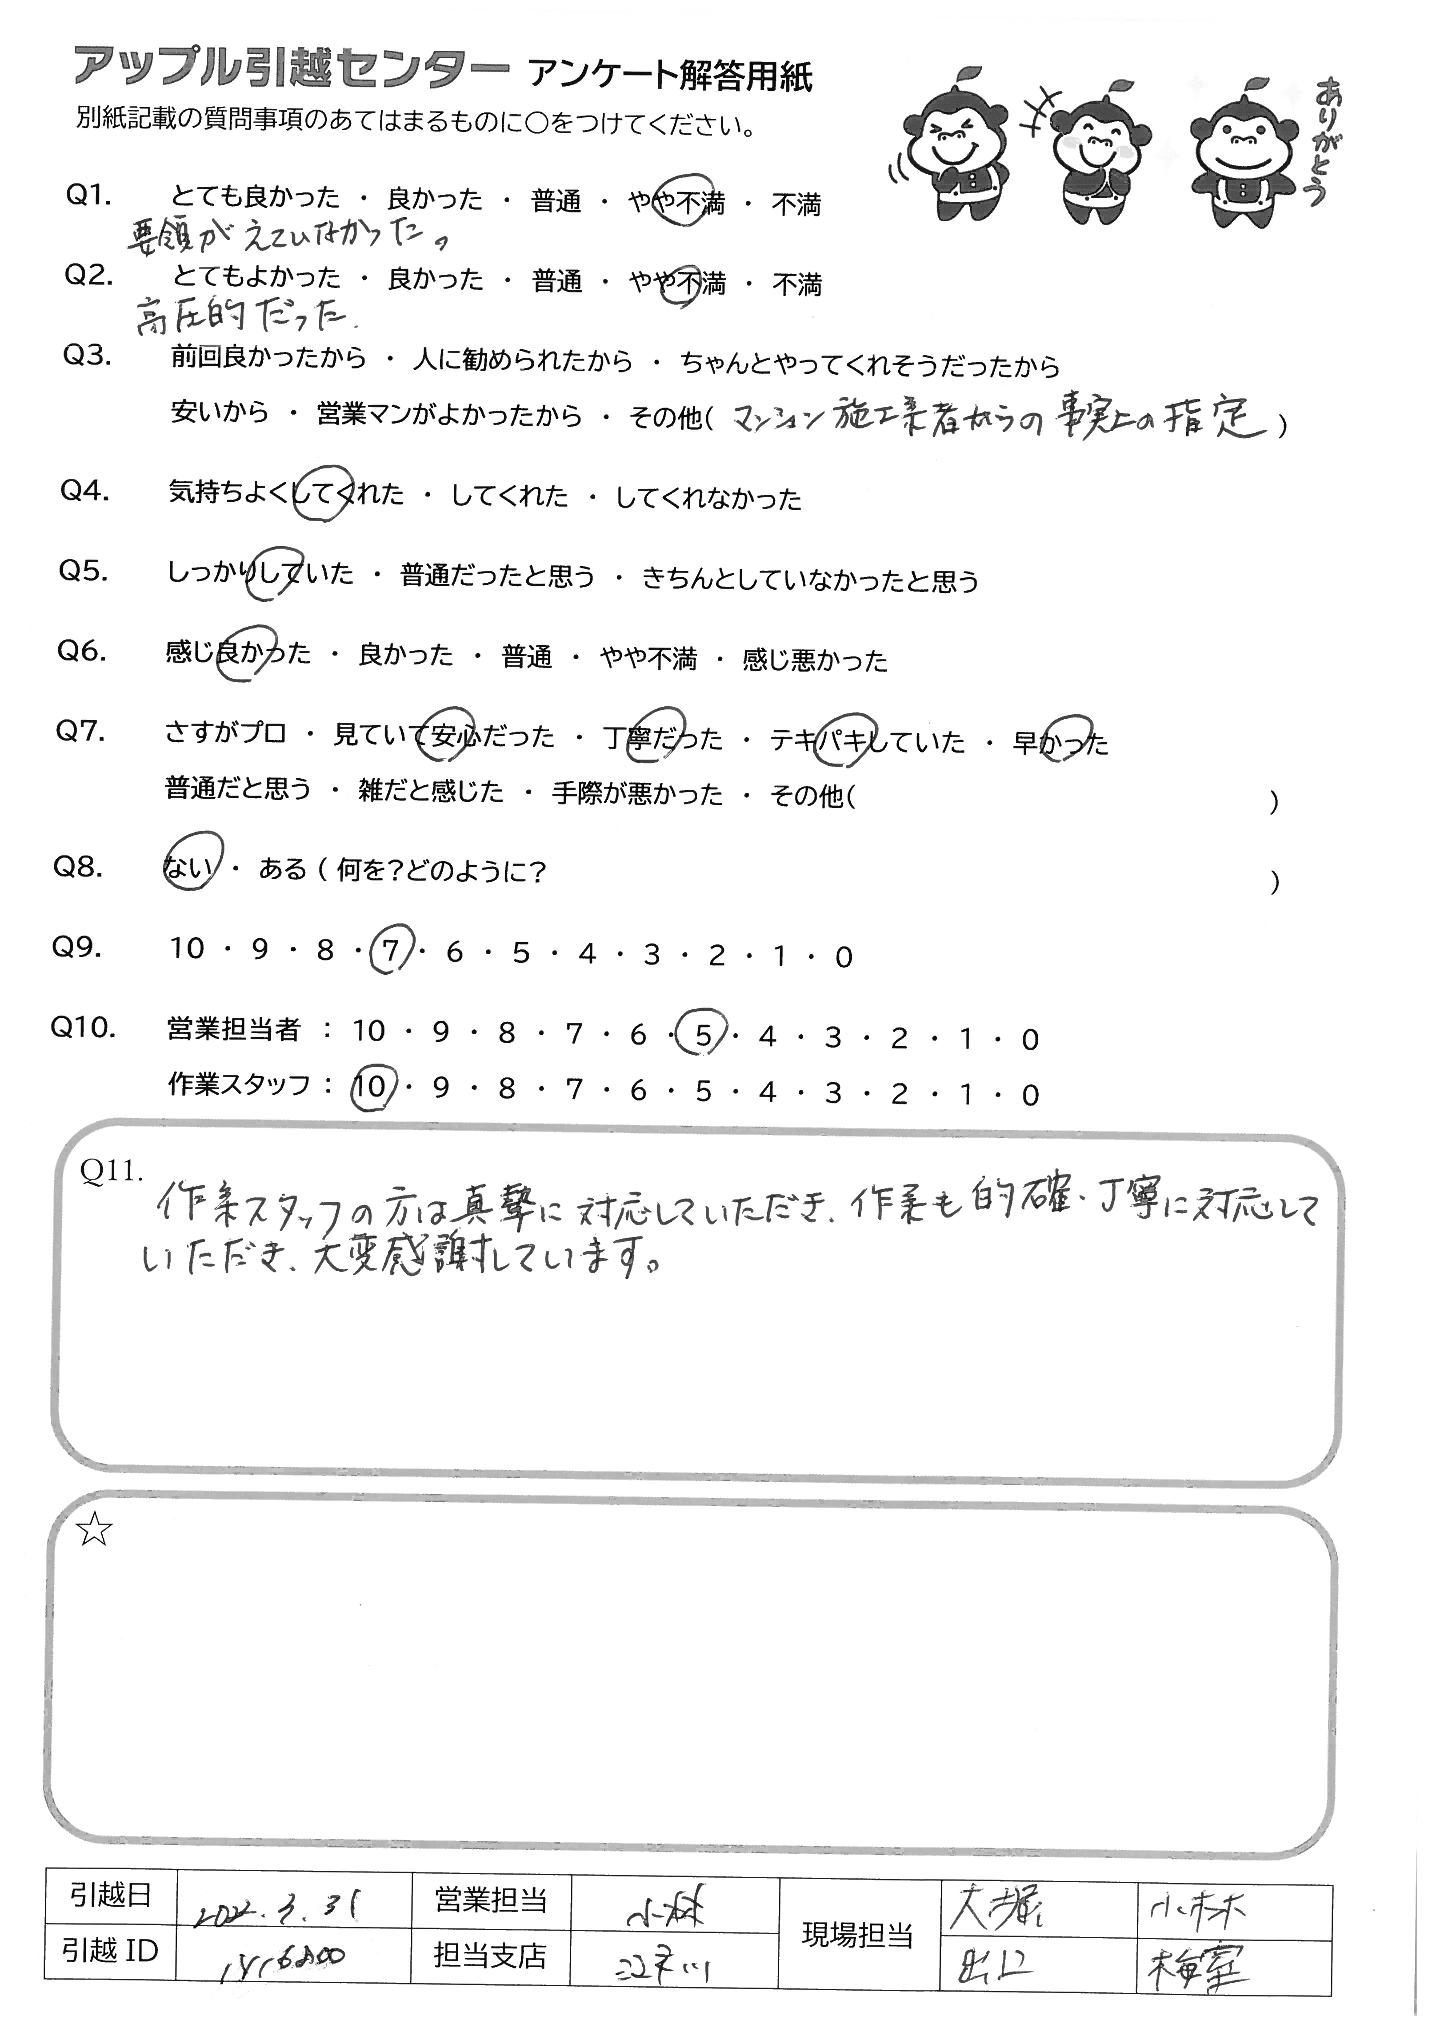 アップル引越センター アンケート解答用紙
別紙記載の質問事項のあてはまるものに○をつけてください。
ありがとう
Q1. とても良かった ・ 良かった ・ 普通 ・ やや不満 ・ 不満
要領がえていなかった。
Q2. とてもよかった ・ 良かった ・ 普通 ・ やや不満 ・ 不満
高圧的だった.
Q3. 前回良かったから ・ 人に勧められたから ・ ちゃんとやってくれそうだったから
安いから ・ 営業マンがよかったから ・ その他( マンション施工業者からの事実上の指定 )
Q4. 気持ちよくしてくれた ・ してくれた ・ してくれなかった
Q5. しっかりしていた ・ 普通だったと思う ・ きちんとしていなかったと思う
Q6. 感じ良かった ・ 良かった ・ 普通 ・ やや不満 ・ 感じ悪かった
Q7. さすがプロ ・ 見ていて安心だった ・ 丁寧だった ・ テキパキしていた ・ 早かった
普通だと思う ・ 雑だと感じた ・ 手際が悪かった ・ その他( )
Q8. ない ・ ある ( 何を?どのように? )
Q9. 10 ・ 9 ・ 8 ・ 7 ・ 6 ・ 5 ・ 4 ・ 3 ・ 2 ・ 1 ・ 0
Q10. 営業担当者 : 10 ・ 9 ・ 8 ・ 7 ・ 6 ・ 5 ・ 4 ・ 3 ・ 2 ・ 1 ・ 0
作業スタッフ : 10 ・ 9 ・ 8 ・ 7 ・ 6 ・ 5 ・ 4 ・ 3 ・ 2 ・ 1 ・ 0
Q11.
作業スタッフの方は真摯に対応していただき、作業も的確・丁寧に対応して
いただき、大変感謝しています。
☆
引越日 2022.3.31 営業担当 小林 現場担当 大堀 小林
引越ID 担当支店 出口